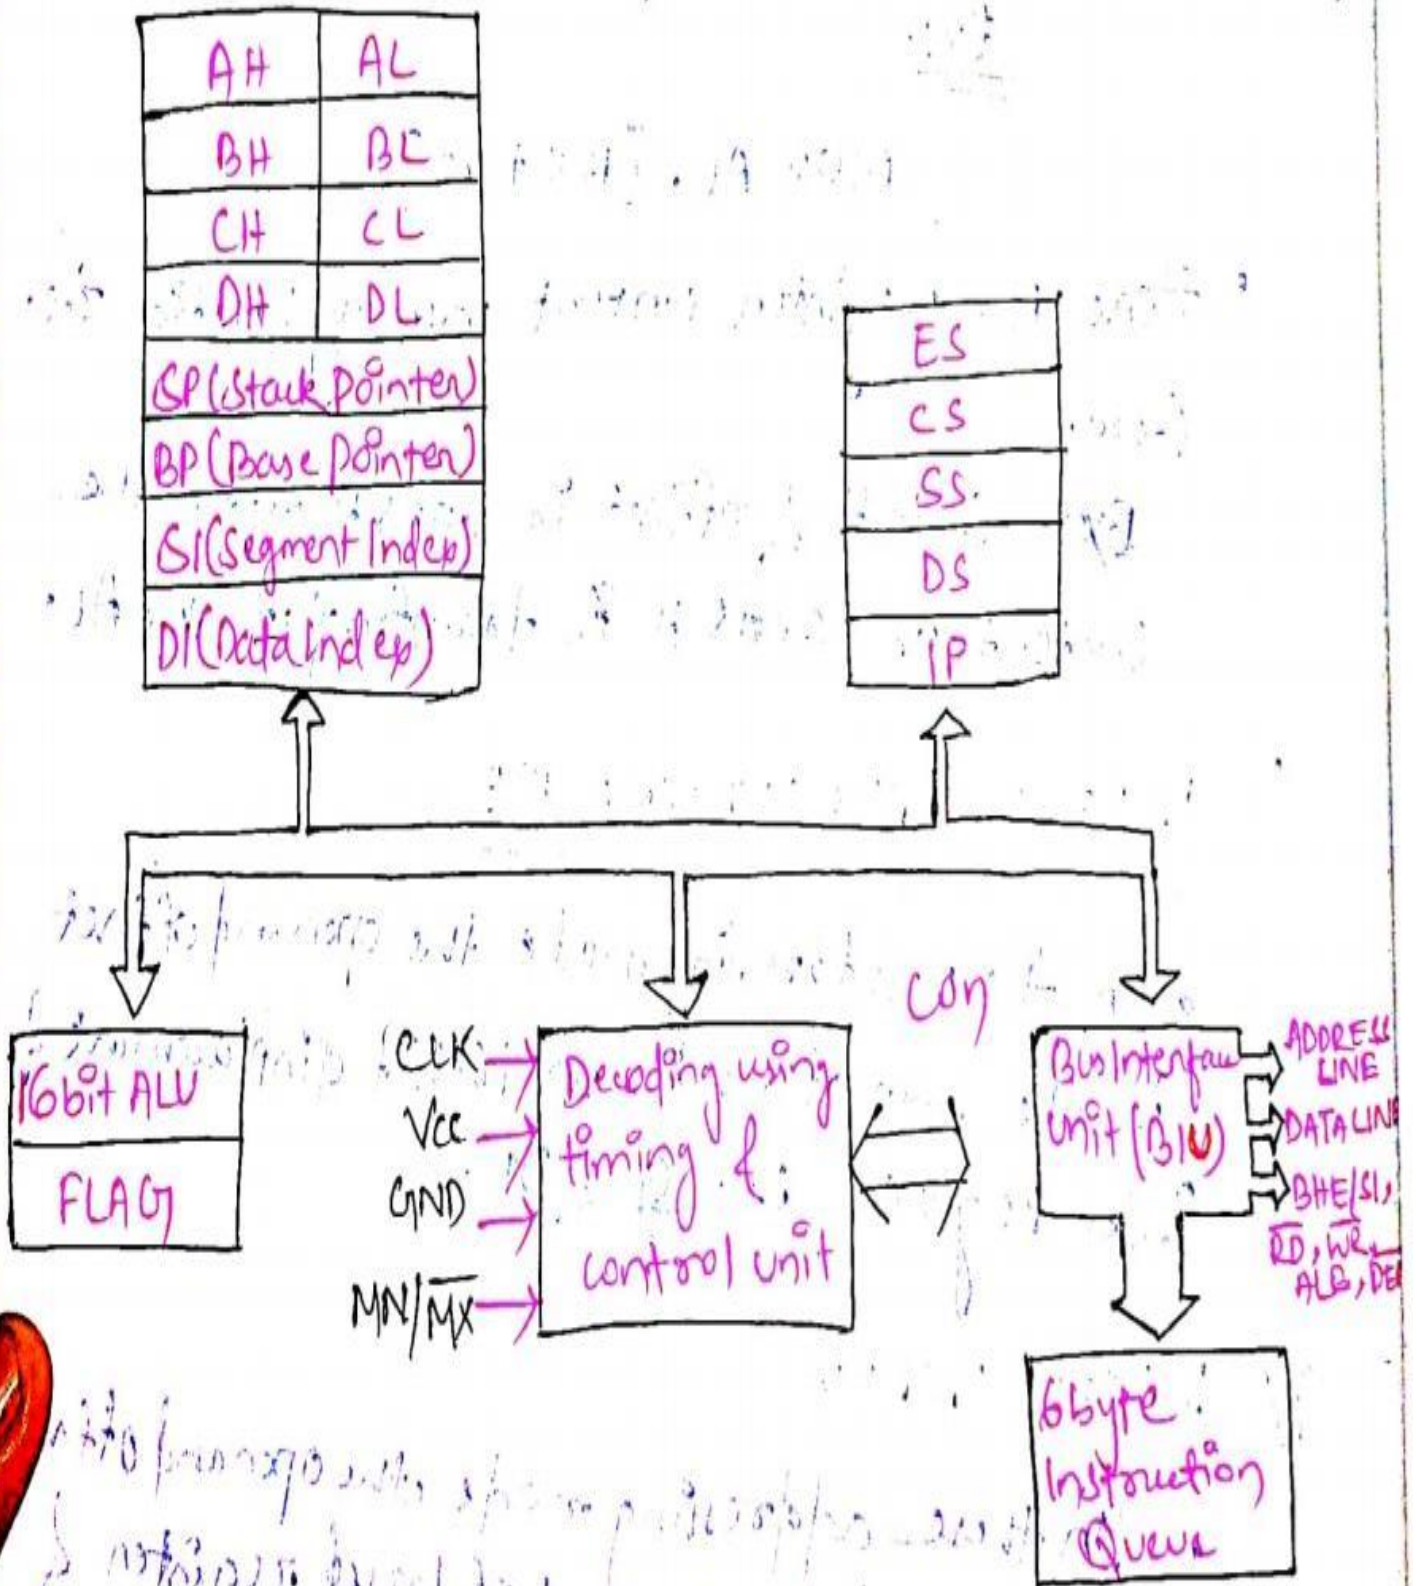 AH AL
BH BL
CH CL
DH DL
SP(Stack Pointer)
BP(Base Pointer)
SI(Segment Index)
DI(Data Index)
ES
CS
SS
DS
IP
16bit ALU
FLAG
CLK
VCC
GND
MN/M̅X̅
Decoding using
timing &
control unit
Con
Bus Interface
Unit (BIU)
ADDRESS
LINE
DATA LINE
BHE/S1,
R̅D̅, W̅R̅,
6byte
Instruction
Queue